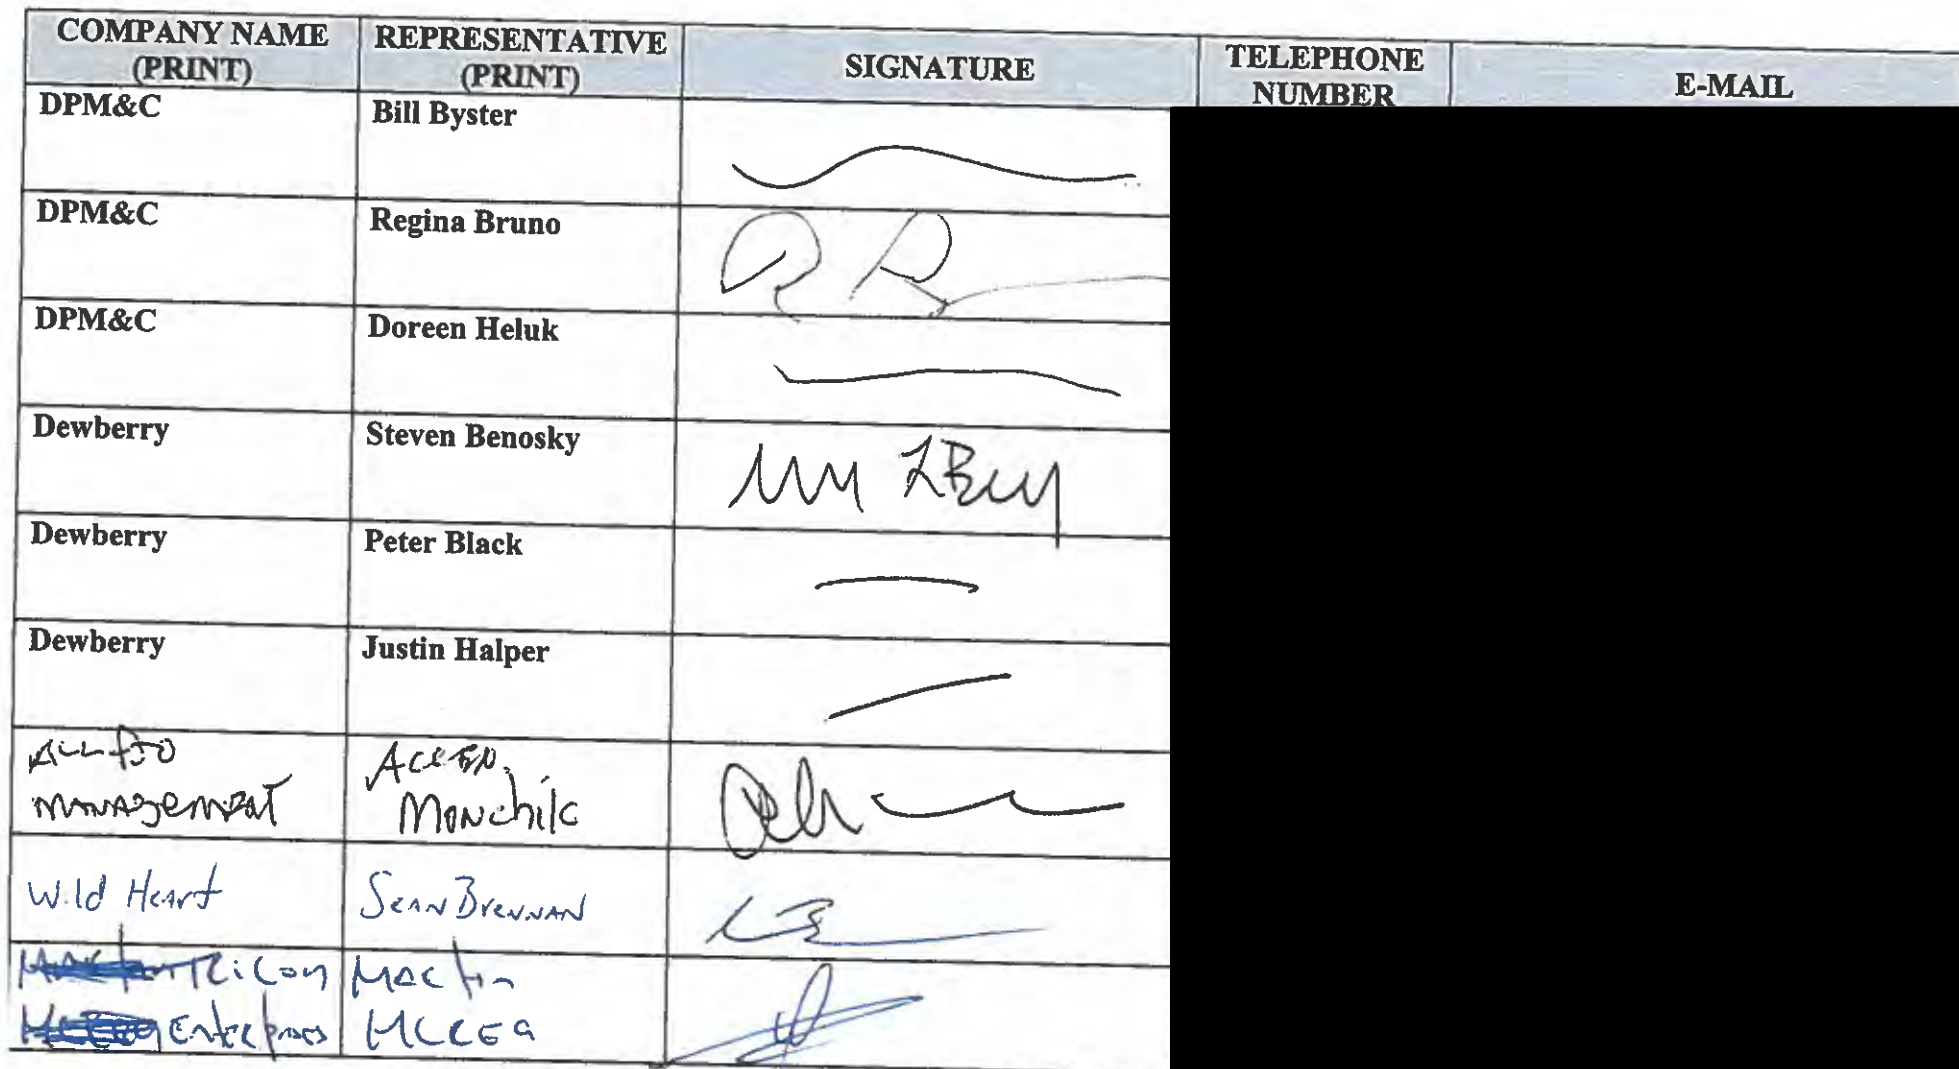 COMPANY NAME (PRINT)
REPRESENTATIVE (PRINT)
SIGNATURE
TELEPHONE NUMBER
E-MAIL
DPM&C Bill Byster
DPM&C Regina Bruno
DPM&C Doreen Heluk
Dewberry Steven Benosky
Dewberry Peter Black
Dewberry Justin Halper
MANAGEMENT
Wild Heart Sean Brennan
Ricon Enterprises Martin McCrea